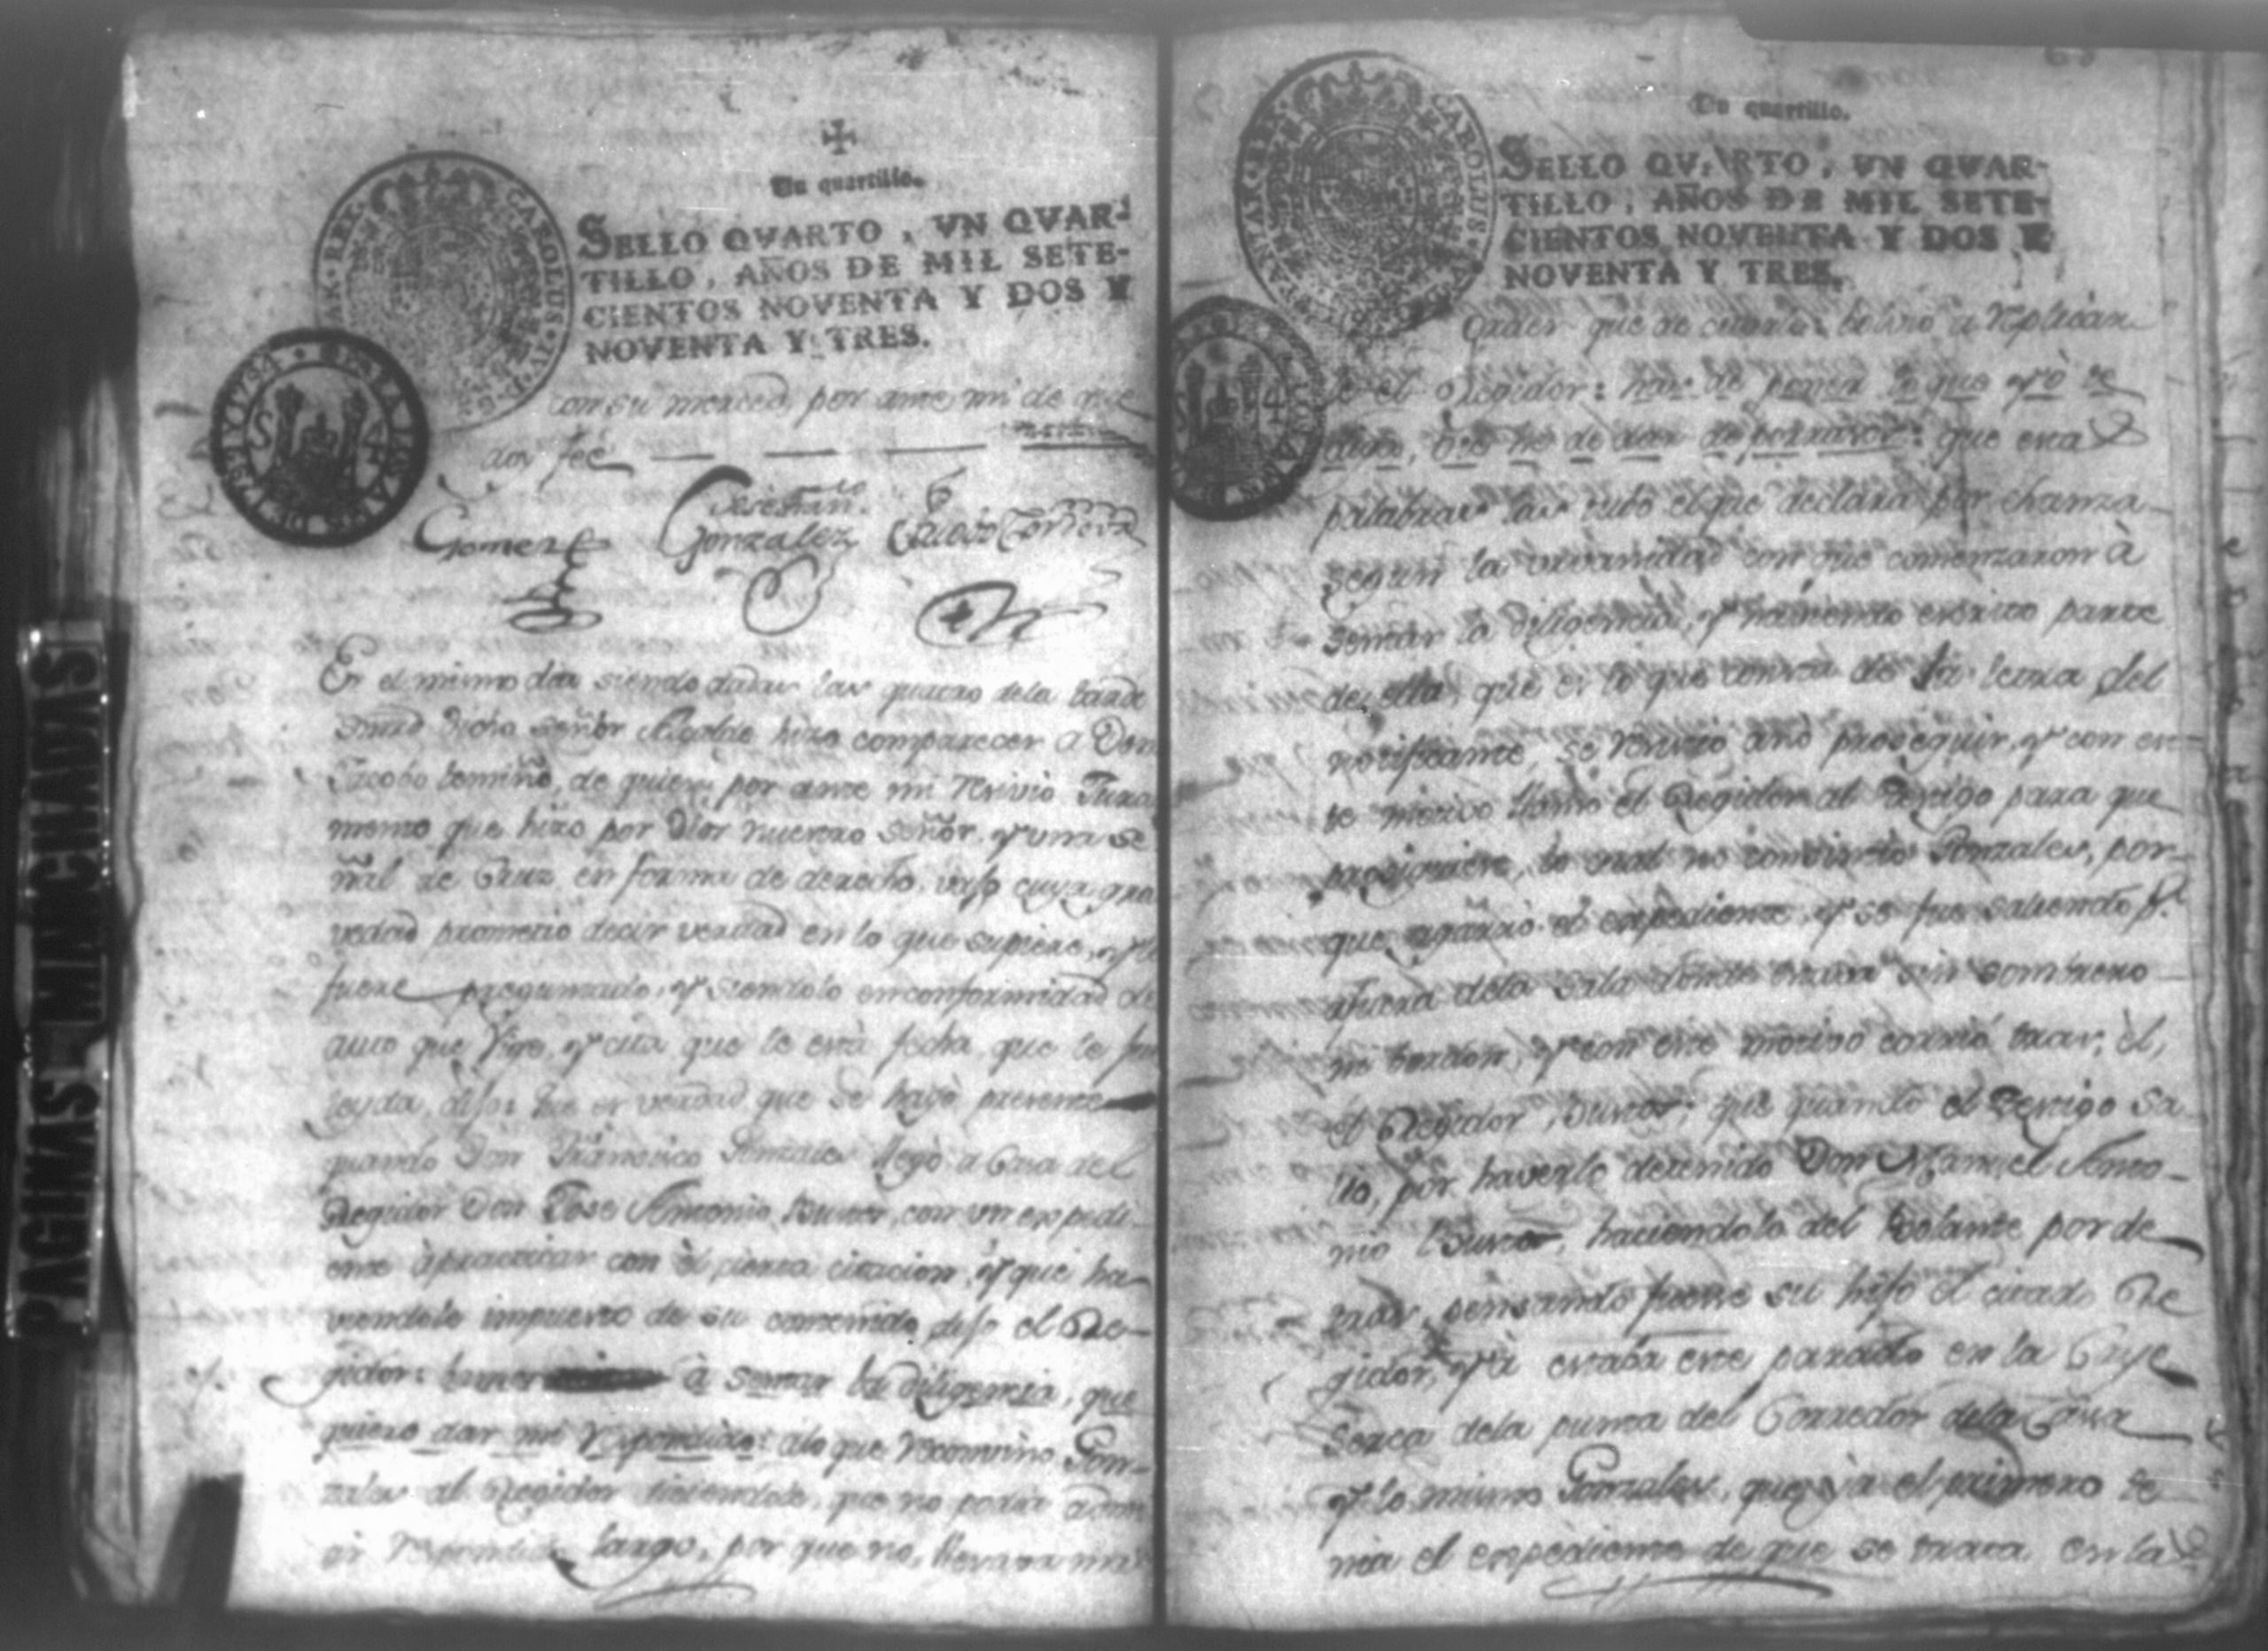 PAGINAS MANCHADAS
Un quartillo.
SELLO QVARTO, VN QVAR-
TILLO, AÑOS DE MIL SETE-
CIENTOS NOVENTA Y DOS Y
NOVENTA Y TRES.
CAROLUS IV D G
con su merced, por ante mi de que
doy feé
Gomez Gonzalez
En el mismo dia siendo dadas las quatro dela tarde
dicho señor Alcalde hizo comparecer a Don
Jacobo temiño, de quien por ante mi recivio Jura
mento que hizo por Dios nuestro señor, y una se
ñal de Cruz en forma de derecho, vajo cuya gra
vedad prometio decir verdad en lo que supiere, y le
fuere preguntado, y siendolo en conformidad del
auto que rige, y cita que le está fecha, que le fue
leyda, dijo: Que es verdad que se hayó presente
quando Don Francisco Gonzales llegó a Casa del
Regidor Don Jose Antonio Bueno, con un expedi-
ente à practicar con èl cierta citacion, y que ha-
viendole impuesto de su contenido, dijo el Re-
gidor: à sentar la diligencia, que
quiero dar mi respondido: alo que reconvino Gon-
zales al Regidor diciendole, que no podia admi
tir respondido largo, por que no, llevava mas
Un quartillo.
SELLO QVARTO, VN QVAR-
TILLO, AÑOS DE MIL SETE-
CIENTOS NOVENTA Y DOS Y
NOVENTA Y TRES.
Orden que de citarlo: bolvió a replicar
le el Regidor: has de poner lo que yò te
diga, ò te he de dar de porrazos: que estas
palabras las tubo el que declara por chanza
segun la urbanidad con que comenzaron à
sentar la diligencia, y haviendo escrito parte
de ella, que es lo que consta de la letra del
notificante, se resistio anó proseguir, y con es-
te motivo llamó el Regidor al Testigo para que
prosiguiese, lo qual no consintió Gonzales, por-
que agarró el expediente, y se fue saliendo pr.
afuera dela sala donde estava sin sombrero
ni baston, y con este motivo corrió tras, èl,
el Regidor, Bueno; que quando el Testigo sa-
lio, por haverlo detenido Don Manuel Anto-
nio Bueno, haciendolo del bolante por de
tras, pensando fuese su hijo el citado Re
gidor, yà estaba este parado en la Caye
serca dela punta del Corredor dela Casa
y lo mismo Gonzales, que yà el primero te
nia el expediente de que se trata en la